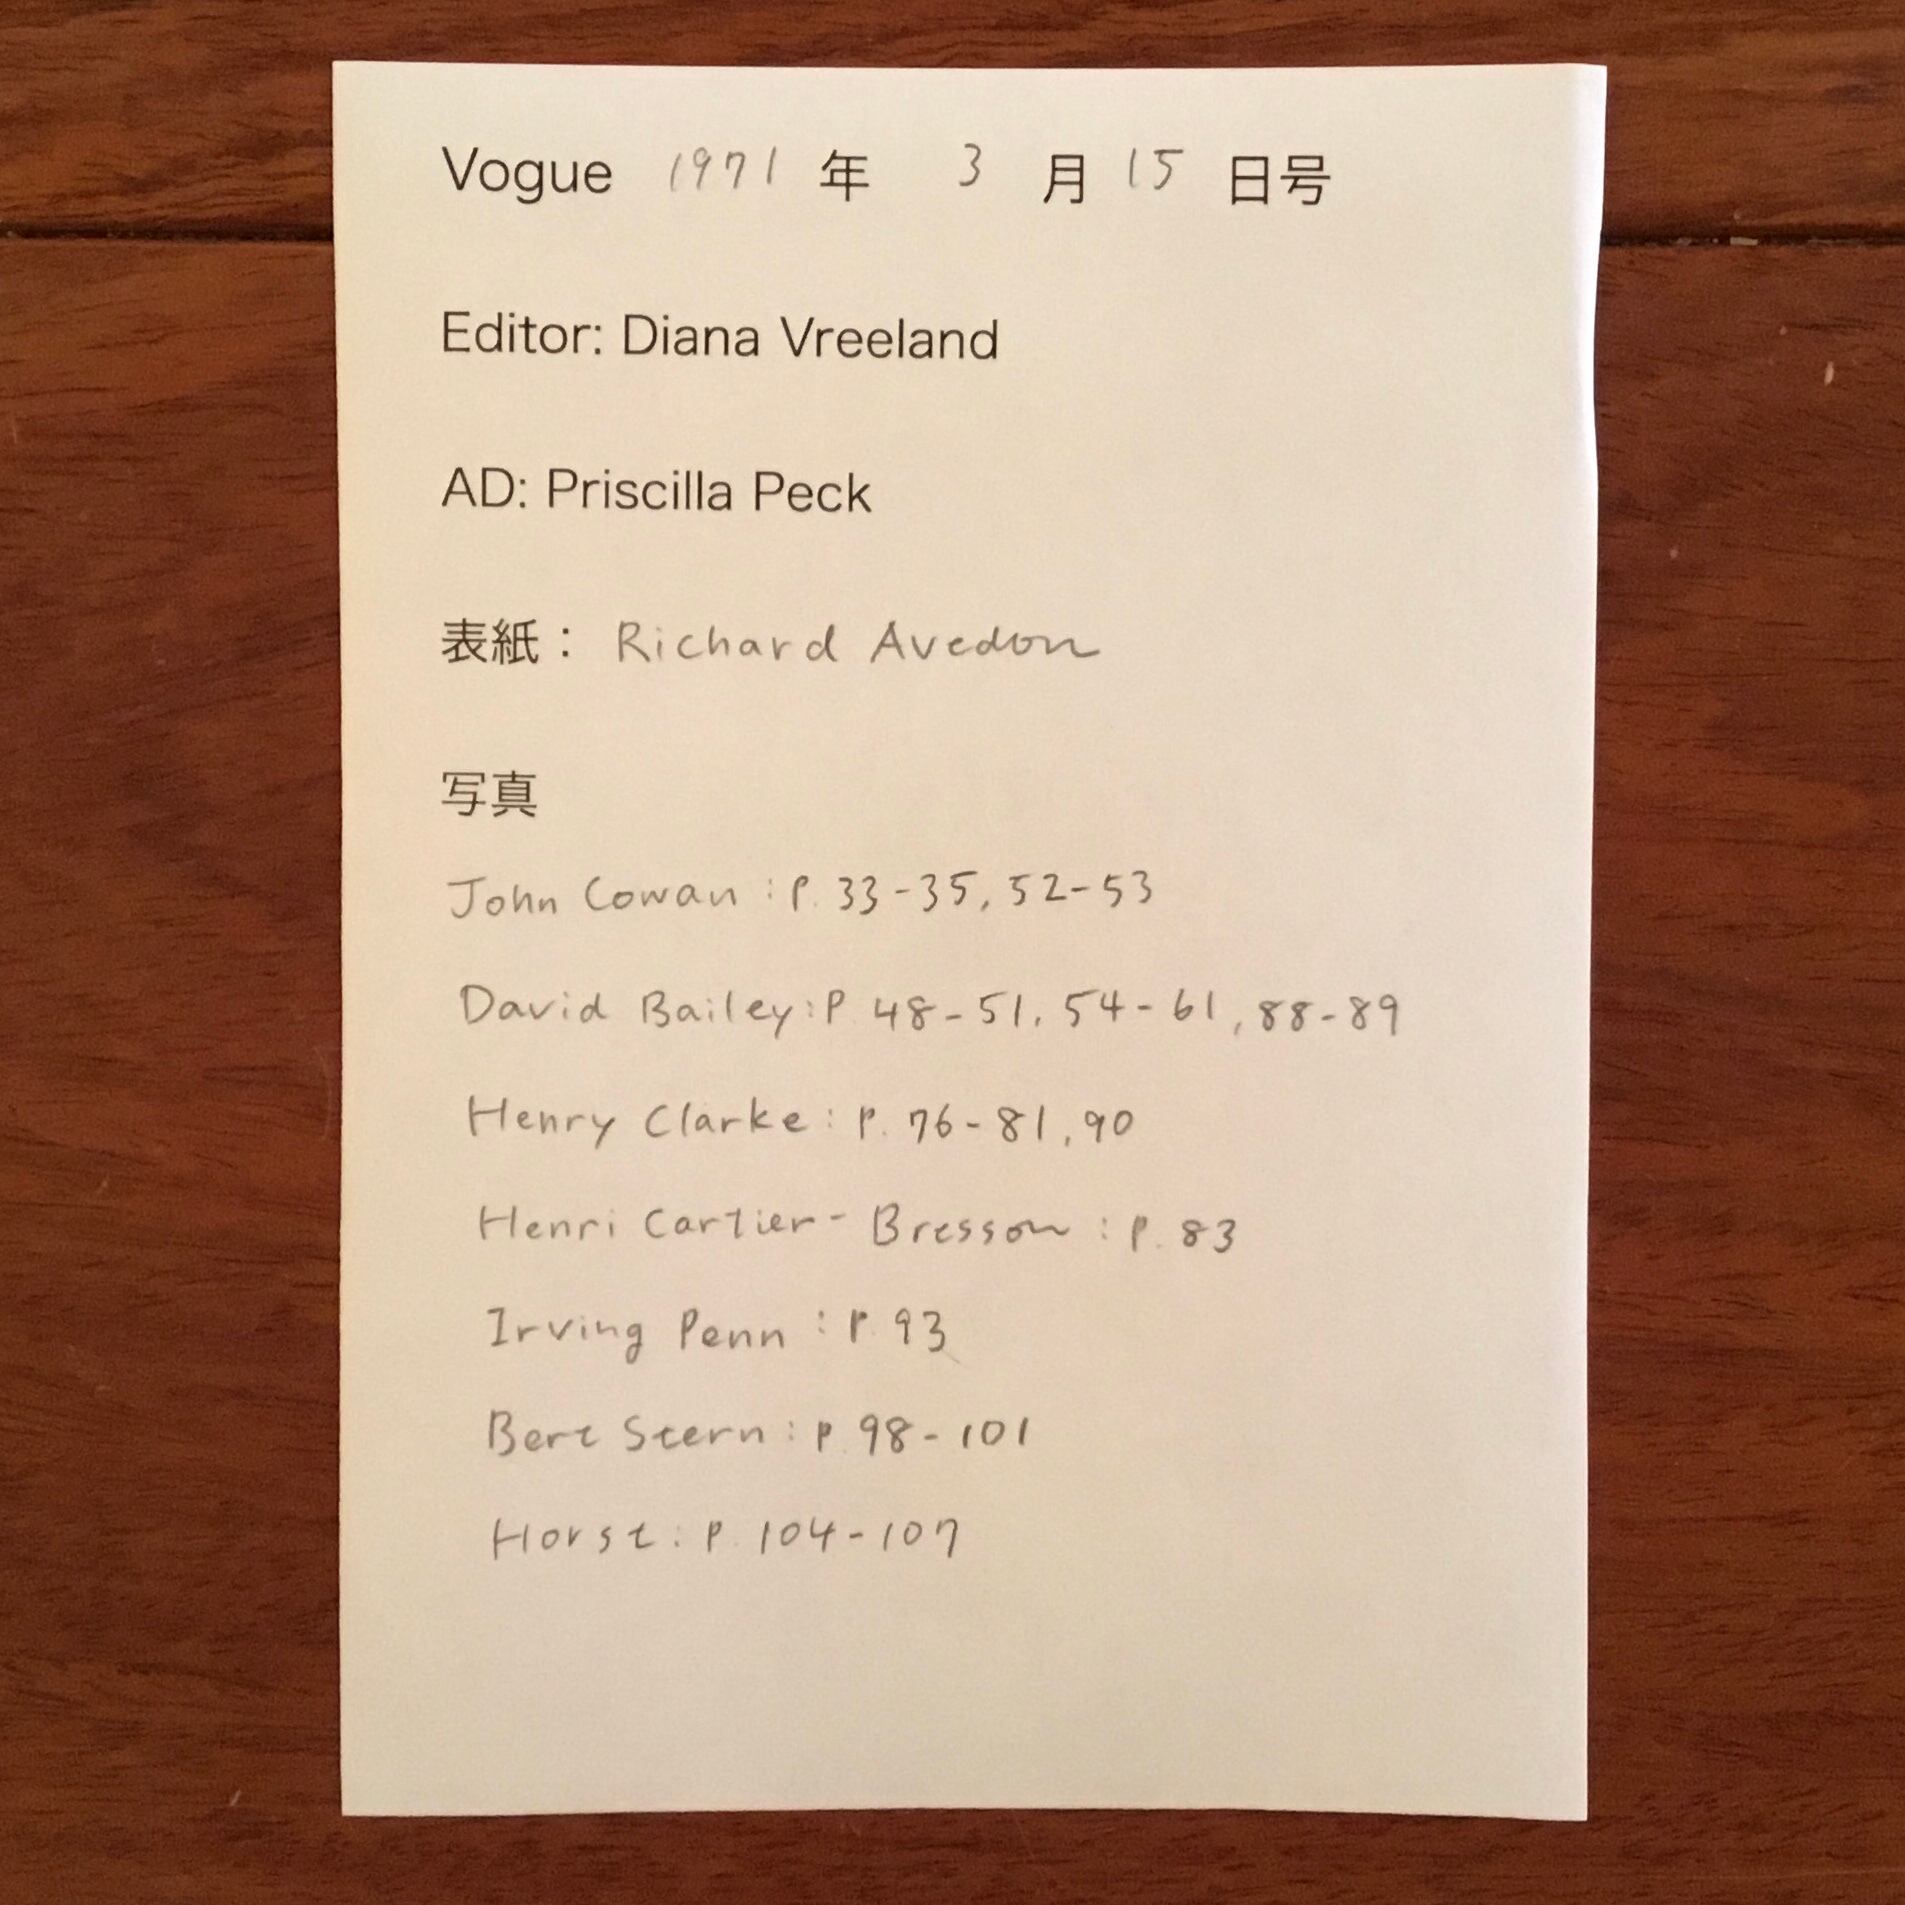 Vogue 1971 年 3 月 15 日号
Editor: Diana Vreeland
AD: Priscilla Peck
表紙： Richard Avedon
写真
John Cowan : P. 33-35, 52-53
David Bailey : P. 48-51, 54-61, 88-89
Henry Clarke : P. 76-81, 90
Henri Cartier-Bresson : P. 83
Irving Penn : P. 93
Bert Stern : P. 98-101
Horst : P. 104-107